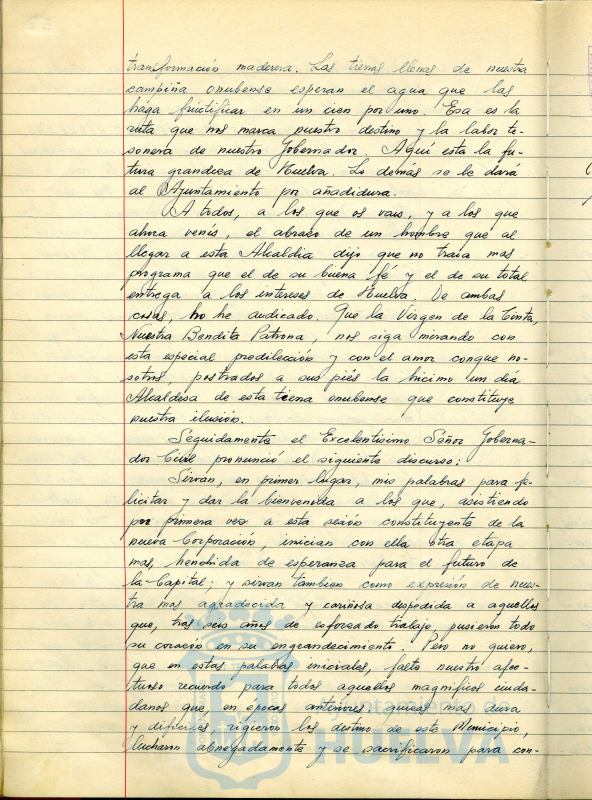 transformación maderera. Las tierras llenas de nuestra
campiña onubense esperan el agua que las
haga fructificar en un cien por uno. Esa es la
ruta que nos marca nuestro destino y la labor te-
sonera de nuestro Gobernador. Aquí esta la fu-
tura grandeza de Huelva. Lo demás se le dará
al Ayuntamiento por añadidura.
A todos, a los que os vais, y a los que
ahora venís, el abrazo de un hombre que al
llegar a esta Alcaldia dijo que no traia mas
programa que el de su buena fé y el de su total
entrega a los intereses de Huelva. De ambas
cosas, no he audicado. Que la Virgen de la Cinta,
Nuestra Bendita Patrona, nos siga mirando con
esta especial predilección y con el amor conque no-
sotros postrados a sus piés la hicimo un día
Alcaldesa de esta tierra onubense que constituye
nuestra ilusión.
Seguidamente el Excelentisimo Señor Goberna-
dor Civil pronunció el siguiente discurso:
Sirvan, en primer lugar, mis palabras para fe-
licitar y dar la bienvenida a los que, asistiendo
por primera vez a esta sesión constituyente de la
nueva Corporación, inician con ella otra etapa
mas, henchida de esperanza para el futuro de
la Capital; y sirvan tambien como expresión de nues-
tra mas agradecida y cariñosa despedida a aquellos
que, tras seis años de esforzado trabajo, pusieron todo
su corazón en su engrandecimiento. Pero no quiero,
que en estas palabras iniciales, falte nuestro afec-
tuoso recuerdo para todos aquellos magnificos ciuda-
danos que, en epocas anteriores, quizas mas dura
y dificiles rigieron los destino de este Municipio,
lucharon abnegadamente y se sacrificaron para con-
HUELVA